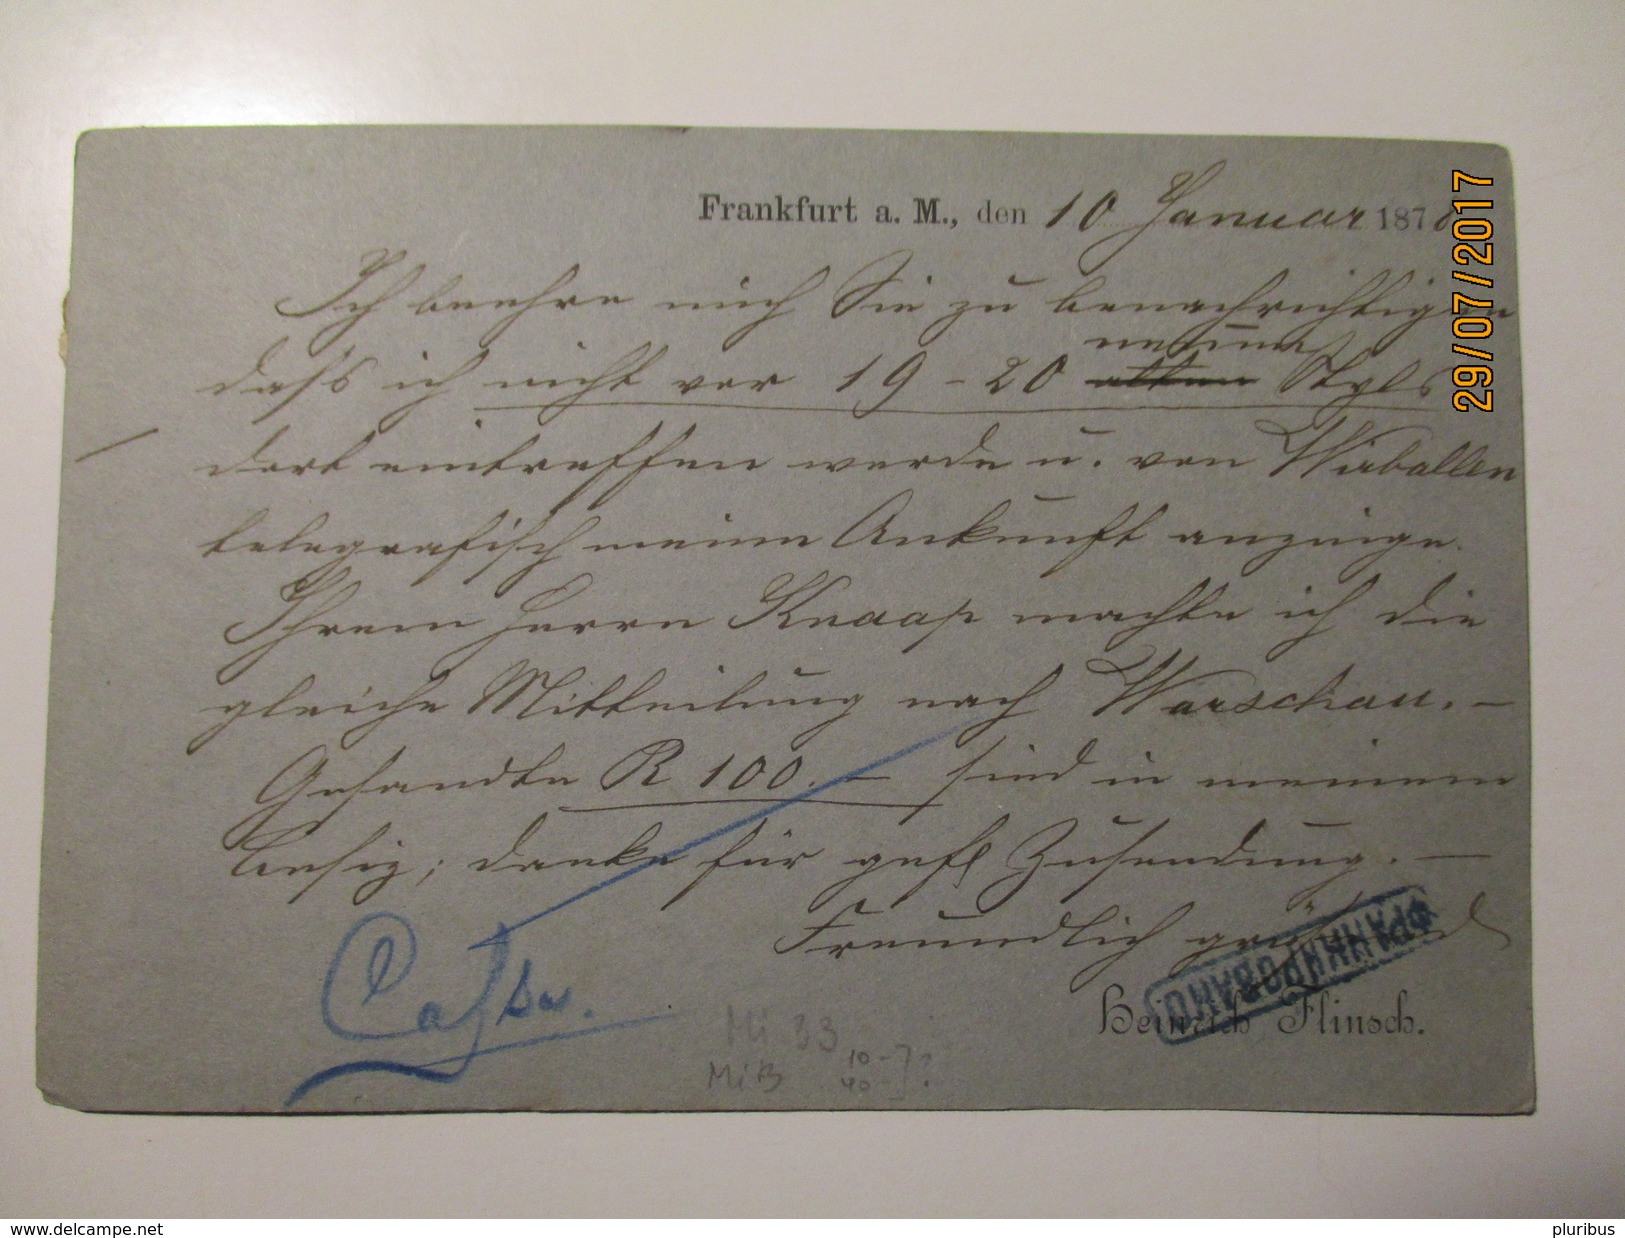 Frankfurt a. M., den 10 Januar 1878
Ich beehre mich Sie zu benachrichtigen
neuen
dass ich nicht vor 19 - 20 alten Styls
dort eintreffen werde u. von Wirballen
telegrafisch meine Ankunft anzeige.
Ihrem Herrn Knaap machte ich die
gleiche Mittheilung nach Warschau. —
Gesandte R 100. — sind in meinem
Besiz; danke für gefl Zusendung. —
Freundlich grüssend
ФРАНКИРОВАНО
Heinrich Flinsch.
Mi 33
10 -
40 -
29/07/2017
www.delcampe.net
pluribus